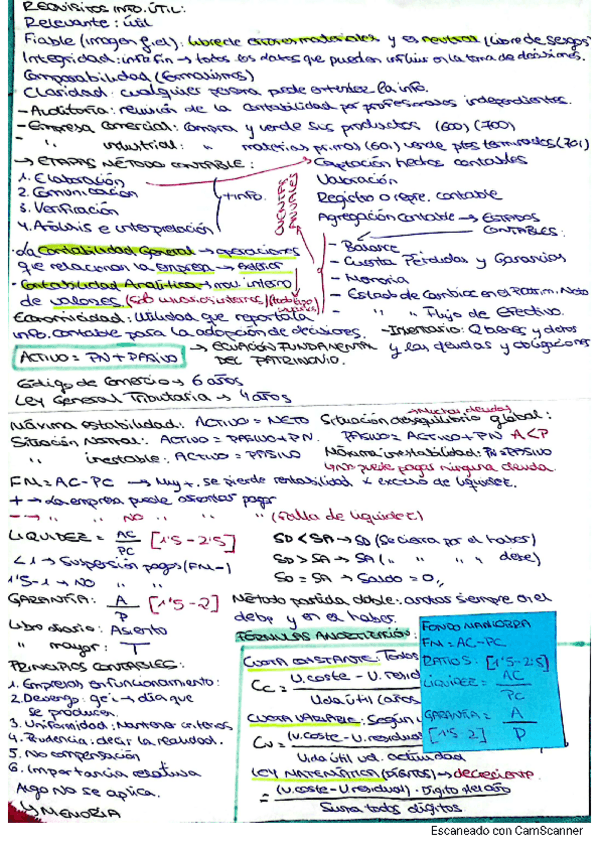 REQUISITOS INFO. ÚTIL:
Relevante: útil
Fiable (imagen fiel): libre de errores materiales y es neutral (libre de sesgos)
Integridad: info fin → todos los datos que pueden influir en la toma de decisiones.
Comparabilidad (formatismos)
Claridad: cualquier persona pueda entender la info.
- Auditoría: revisión de la contabilidad por profesionales independientes.
- Empresa Comercial: compra y vende sus productos (600) (700)
- " industrial: " materias primas (601) vende ptos terminados (701)
→ ETAPAS MÉTODO CONTABLE:
1. Elaboración
2. Comunicación
3. Verificación
4. Análisis e interpretación
+ info.
CUENTAS ANUALES
Captación hechos contables
Valoración
Registro o repre. contable
Agregación contable → ESTADOS CONTABLES:
- Balance
- Cuenta Pérdidas y Ganancias
- Memoria
- Estado de Cambios en el Patrim. Neto
- " " Flujo de Efectivo.
· La Contabilidad General → operaciones
que relacionan la empresa → exterior
· Contabilidad Analítica → mov. interno
de valores. (sólo usuarios internos)
Economicidad: Utilidad que reporta la
info. contable para la adopción de decisiones.
- Inventario: Q bienes y dctos
y las deudas y obligaciones
ACTIVO = PN + PASIVO
→ ECUACIÓN FUNDAMENTAL
DEL PATRIMONIO.
Código de Comercio → 6 años
Ley General Tributaria → 4 años
Máxima estabilidad: ACTIVO = NETO
Situación Normal: ACTIVO = PASIVO + PN.
" inestable: ACTIVO = PASIVO
→ Muchas deudas
Situación desequilibrio global:
PASIVO = ACTIVO + PN A<P
Máxima inestabilidad: PN = PASIVO
↳ No puede pagar ninguna deuda.
FM = AC - PC → Muy +. se pierde rentabilidad x exceso de liquidez.
+ → La empresa puede afrontar pagos
- → " " NO " " (falta de liquidez)
LIQUIDEZ = AC / PC [1'5 - 2'5]
< 1 → Suspensión pagos (FM -)
1'5 - 1 → NO " "
GARANTÍA: A / P [1'5 - 2]
SD < SA → SD (Se cierra por el haber)
SD > SA → SA ( " " " " debe)
SD = SA → Saldo = 0,,
Método partida doble: anotas siempre en el
debe y en el haber.
Libro diario: Asiento
" mayor: T
PRINCIPIOS CONTABLES:
1. Empresas en funcionamiento:
2. Devengo: g e i → día que
se producen.
3. Uniformidad: Mantener criterios
4. Prudencia: decir la realidad.
5. No compensación
6. Importancia relativa
Algo No se aplica.
↳ MEMORIA
FÓRMULAS AMORTIZACIÓN:
CUOTA CONSTANTE: Todos
Cc = V. coste - V. resid
Vida útil (años
CUOTA VARIABLE: Según
Cv = (V. coste - V. residual
Vida útil ud. actividad
LEY MATEMÁTICA (DÍGITOS) → decreciente.
= (V. coste - V residual) · Dígito del año
Suma todos dígitos
FONDO MANIOBRA
FM = AC - PC
RATIOS: [1'5 - 2'5]
LIQUIDEZ = AC / PC
GARANTÍA = A / P
[1'5 - 2]
Escaneado con CamScanner